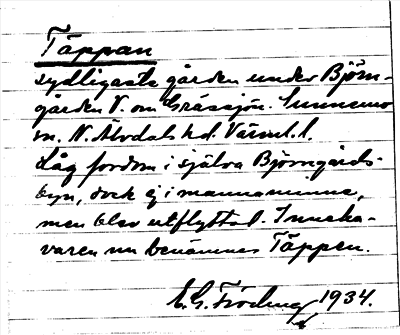 Täppan
sydligaste gården under Björn-
gården V. om Gråssjön. Sunnemo
sn. N. Älvdals hd. Värml. l.
Låg fordom i själva Björngårds-
byn, dock ej i mannaminne,
men blev utflyttad. Inneha-
varen nu benämnes Täppen.
E. G. Fröding 1934.